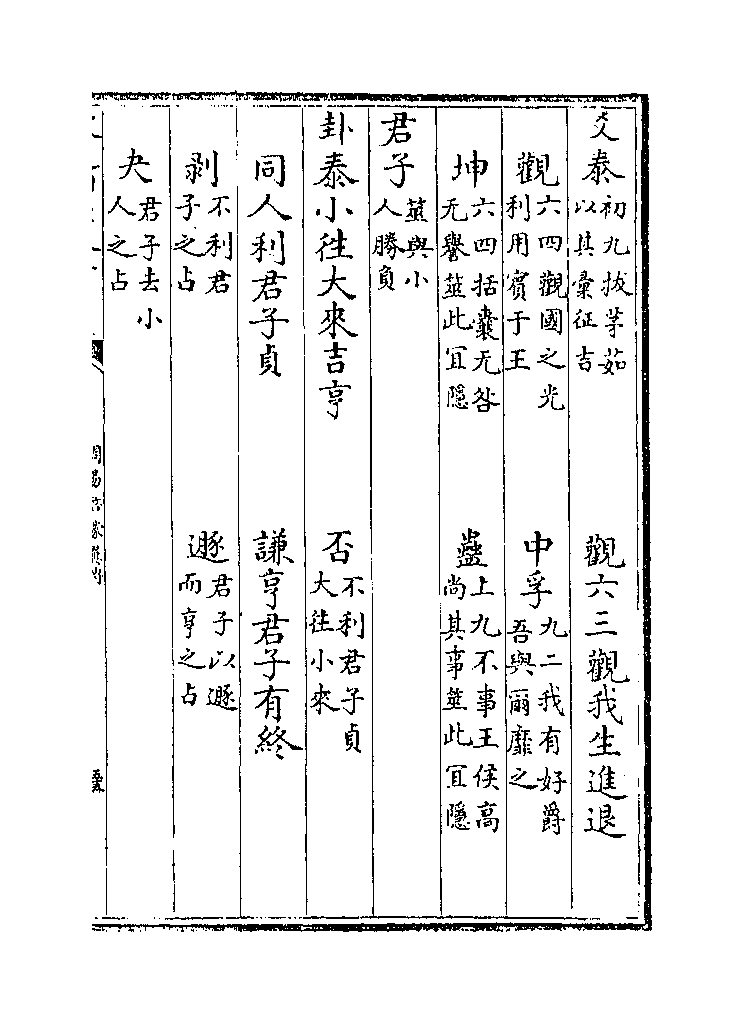 爻泰初九拔茅茹以其彙征吉　觀六三觀我生進退
觀六四觀國之光利用賓于王　中孚九二我有好爵吾與爾靡之
坤六四括囊无咎无譽筮此宜隱　蠱上九不事王侯高尚其事筮此宜隱
君子筮與小人勝負
卦泰小往大來吉亨　否不利君子貞大往小來
同人利君子貞　謙亨君子有終
剥不利君子之占　遯君子以遯而亨之占
夬君子去小人之占